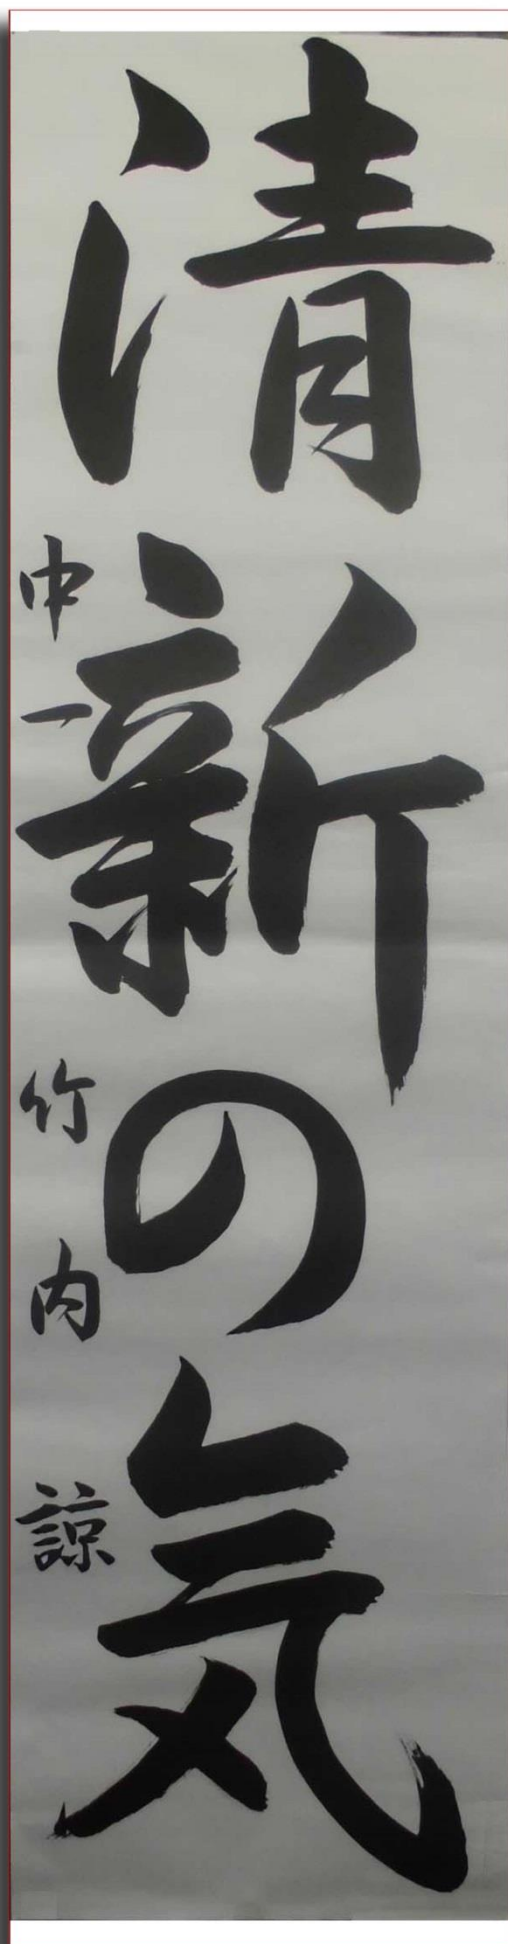 清新の気
中一 竹内 諒